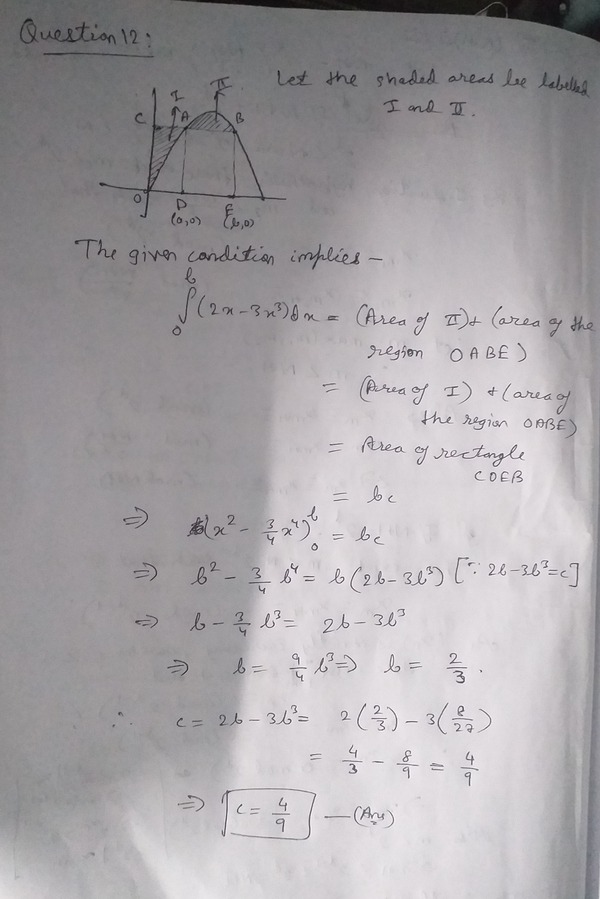 Question 12:
Let the shaded areas be labelled
I and II.
I
II
C
A
B
O
D
E
(a,0)
(b,0)
The given condition implies -
∫₀ᵇ (2x - 3x³)dx = (Area of II) + (area of the
region OABE)
= (Area of I) + (area of
the region OABE)
= Area of rectangle
COEB
= bc
⇒ (x² - 3/4 x⁴)₀ᵇ = bc
⇒ b² - 3/4 b⁴ = b(2b - 3b³) [∵ 2b - 3b³ = c]
⇒ b - 3/4 b³ = 2b - 3b³
⇒ b = 9/4 b³ ⇒ b = 2/3.
∴ c = 2b - 3b³ = 2(2/3) - 3(8/27)
= 4/3 - 8/9 = 4/9
⇒ c = 4/9 — (Ans)